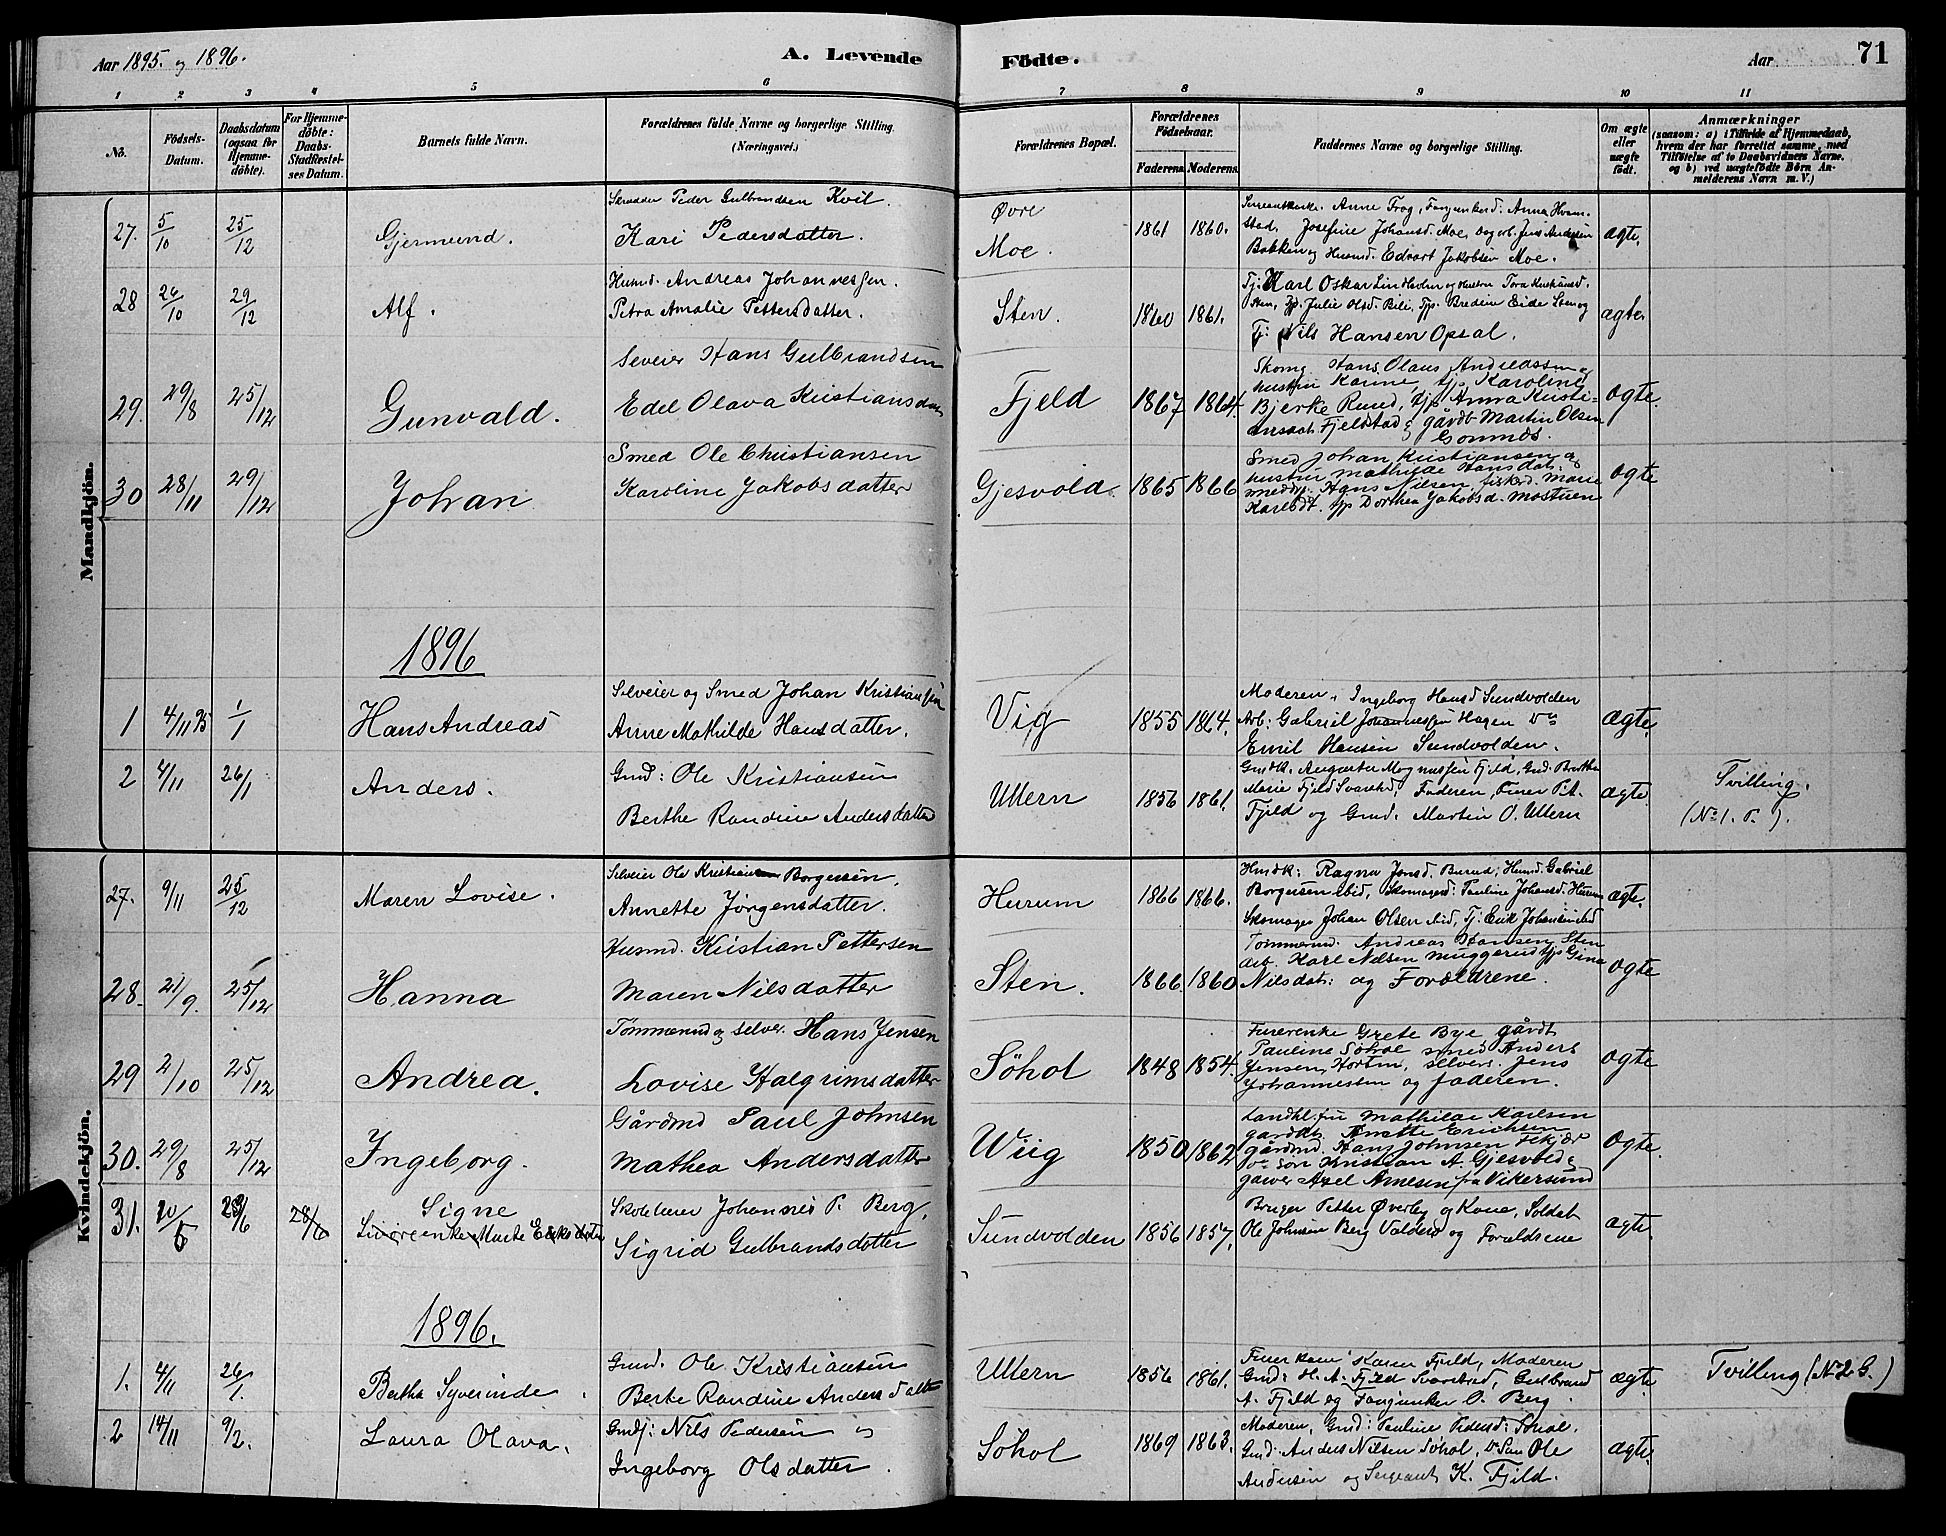 Aar 1895. og 1896.
A. Levende Födte.
Aar
71
1 2 3 4 5 6 7 8 9 10 11
No.
Födsels-Datum.
Daabsdatum (ogsaa for Hjemme-döbte).
For Hjemme-döbte: Daabs-Stadfæstel-ses Datum.
Barnets fulde Navn.
Forældrenes fulde Navne og borgerlige Stilling. (Næringsvei.)
Forældrenes Bopæl.
Forældrenes Födselsaar.
Faderens. Moderens.
Faddernes Navne og borgerlige Stilling.
Om ægte eller uægte födt.
Anmærkninger
(saasom: a) i Tilfælde af Hjemmedaab, hvem der har forrettet samme, med Tilföielse af to Daabsvidners Navne. og b) ved uægtefödte Börn An-melderens Navn m. V.)
Mandkjön.
27. 5/10 25/12 Gjermund.
Peder Gulbrandsen Kvil.
Kari Pedersdatter.
Øvre Moe. 1861 1860.
Anne Frog, Anna Hvam-
stad, Josefine Johansd. Moe, Jens Andersen
Bakken og Husmd. Edvart Jakobsen Moe.
ægte.
28 26/10 29/12 Alf.
Husmd. Andreas Johannesen.
Petra Amalie Pettersdatter.
Sten. 1860 1861.
Tj. Karl Oskar Lindholm og Hustru Tora
Sten, Julie Olsd. Bili, Tjp. Eide Sten og
Tj: Nils Hansen Opsal.
ægte.
29. 29/8 25/12 Gunvald.
Selveier Hans Gulbrandsen
Edel Olava Kristiansdatter
Fjeld 1867 1864.
Skomg Hans Olaus Andreassen og
hustru Karine, tjp. Karoline
Bjerke Rund, tjp Anna Kristi-
ansdat. Fjeldstad & gårdb Martin Olsen
ægte.
30 28/11 29/12 Johan
Smed Ole Christiansen
Karoline Jakobsdatter
Gjesvold. 1865 1866
Smed Johan Kristiansen og
hustru Mathilde Hansdat.
Hans Nilsen, Marie
Karlsdt. tjp Dorthea Jakobsd. Mostuen
ægte
1896
1 4/11 95 1/1 Hans Andreas
Selveier og Smed Johan Kristiansen
Anne Mathilde Hansdatter.
Vig 1855 1864.
Moderen, Ingeborg Hansd Sundvolden
Arb: Gabriel Johannessen Hagen
Emil Hansen Sundvolden.
ægte.
2 4/11 26/1 Anders.
Gmd: Ole Kristiansen
Berthe Randine Andersdatter
Ullern 1856 1861.
Fjeld, Gmd. Berthe
Marie Fjeld Svarstad, Faderen,
Fjeld og Gmd. Martin O. Ullern
ægte
Tvilling.
(No 1. P.).
Kvindekjön.
27. 9/11 25/12 Maren Lovise.
Selveier Ole Kristian Borgersen,
Annette Jörgensdatter.
Hurum 1866 1866.
Ragna Jonsd. Burud, Husmd. Gabriel
Borgersen ibid, Skomagerd: Pauline Johansd. Hurum
Skomager Johan Olsen ibid, Tj: Erik Johansen ibid
ægte.
28. 21/9. 25/12 Hanna
Husmd. Kristian Pettersen
Maren Nilsdatter
Sten. 1866. 1860
Tömmermd. Andreas Hansen, Sten
arb. Karl Nilsen Muggerud tjp Gina
Nilsdat: og Forældrene.
ægte
29 2/10 25/12 Andrea.
Tömmermd og selvei. Hans Jensen
Lovise Halgrimsdatter
Söhol 1848 1854.
Grete Bye gårdt
Pauline Söhol smed Anders
Jensen Horten, selvei. Jens
Johannessen og faderen.
ægte
30. 29/8 25/12 Ingeborg.
Gårdmd Paul Johnsen
Mathea Andersdatter
Wiig 1850 1862
Landhl. fru Mathilde Karlsen
gårddt. Anette Erichsen
gårdmd. Hans Johnsen
sön Kristian A. Gjesvold &
garver Axel Arnesen fra Vikersund
ægte.
31. 20/5 28/6 28/6 Signe
Skolelærer Johannes P. Berg,
Sigrid Gulbrandsdatter
Sundvolden 1856 1857.
Bruger Petter Øverby og Kone, Soldat
Ole Johnsen Berg Valders og Forældrene
ægte.
1896.
1. 4/11 26/1. Bertha Syverinde.
Gmd. Ole Kristiansen
Berte Randine Andersdatter
Ullern 1856 1861.
Karen Fjeld, Moderen
Gmd: H. A. Fjeld Svarstad, Gulbrand
A. Fjeld og Fanejunker O. Berg.
ægte
Tvilling (No 2 G.)
2 14/11 9/2. Laura Olava.
Gmdf: Nils Pedersen og
Ingeborg Olsdatter.
Söhol 1869 1863.
Moderen, Gmd: Pauline Pedersd: Söhol.
Gmd. Anders Nilsen Söhol, Ole
Andersen og Sergeant K. Fjeld.
ægte.